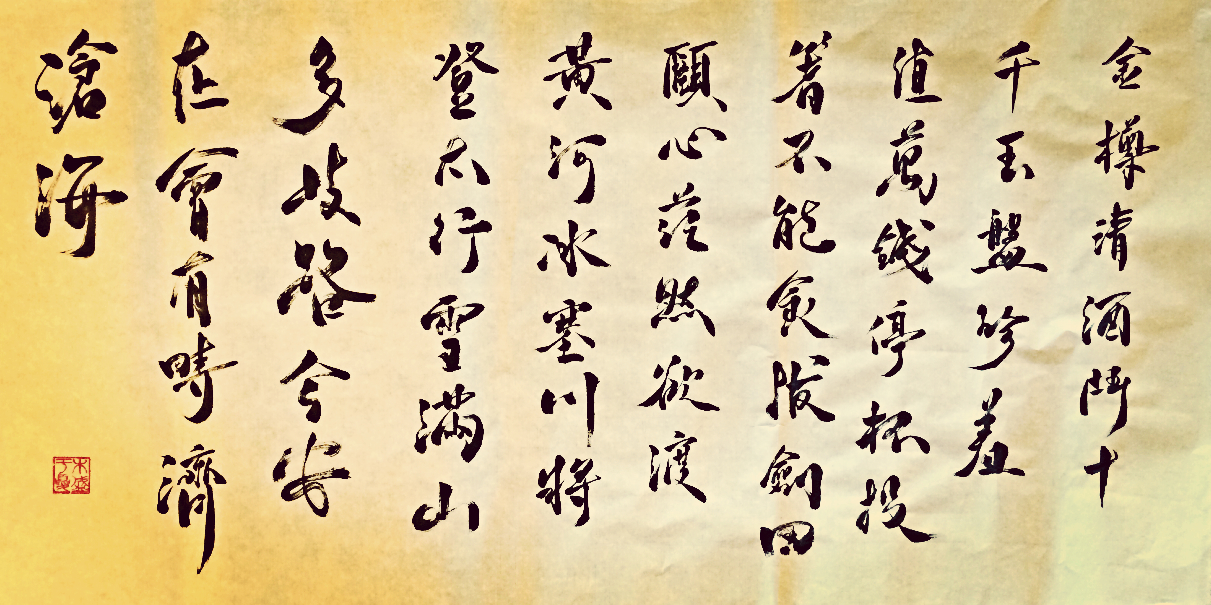 金樽清酒鬥十
千玉盤珍羞
值萬錢停杯投
箸不能食拔劍四
頤心茫然欲渡
黃河冰塞川將
登太行雪滿山
多歧路今安
在會有時濟
滄海